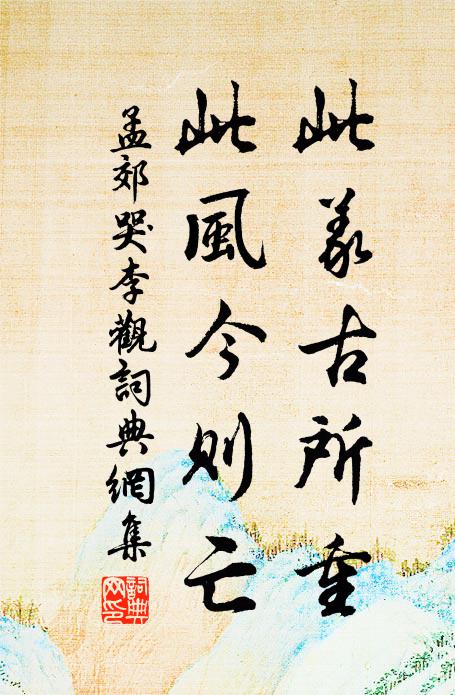 此義古所重
此風今則亡
孟郊哭李觀詞典網集
詞典网印